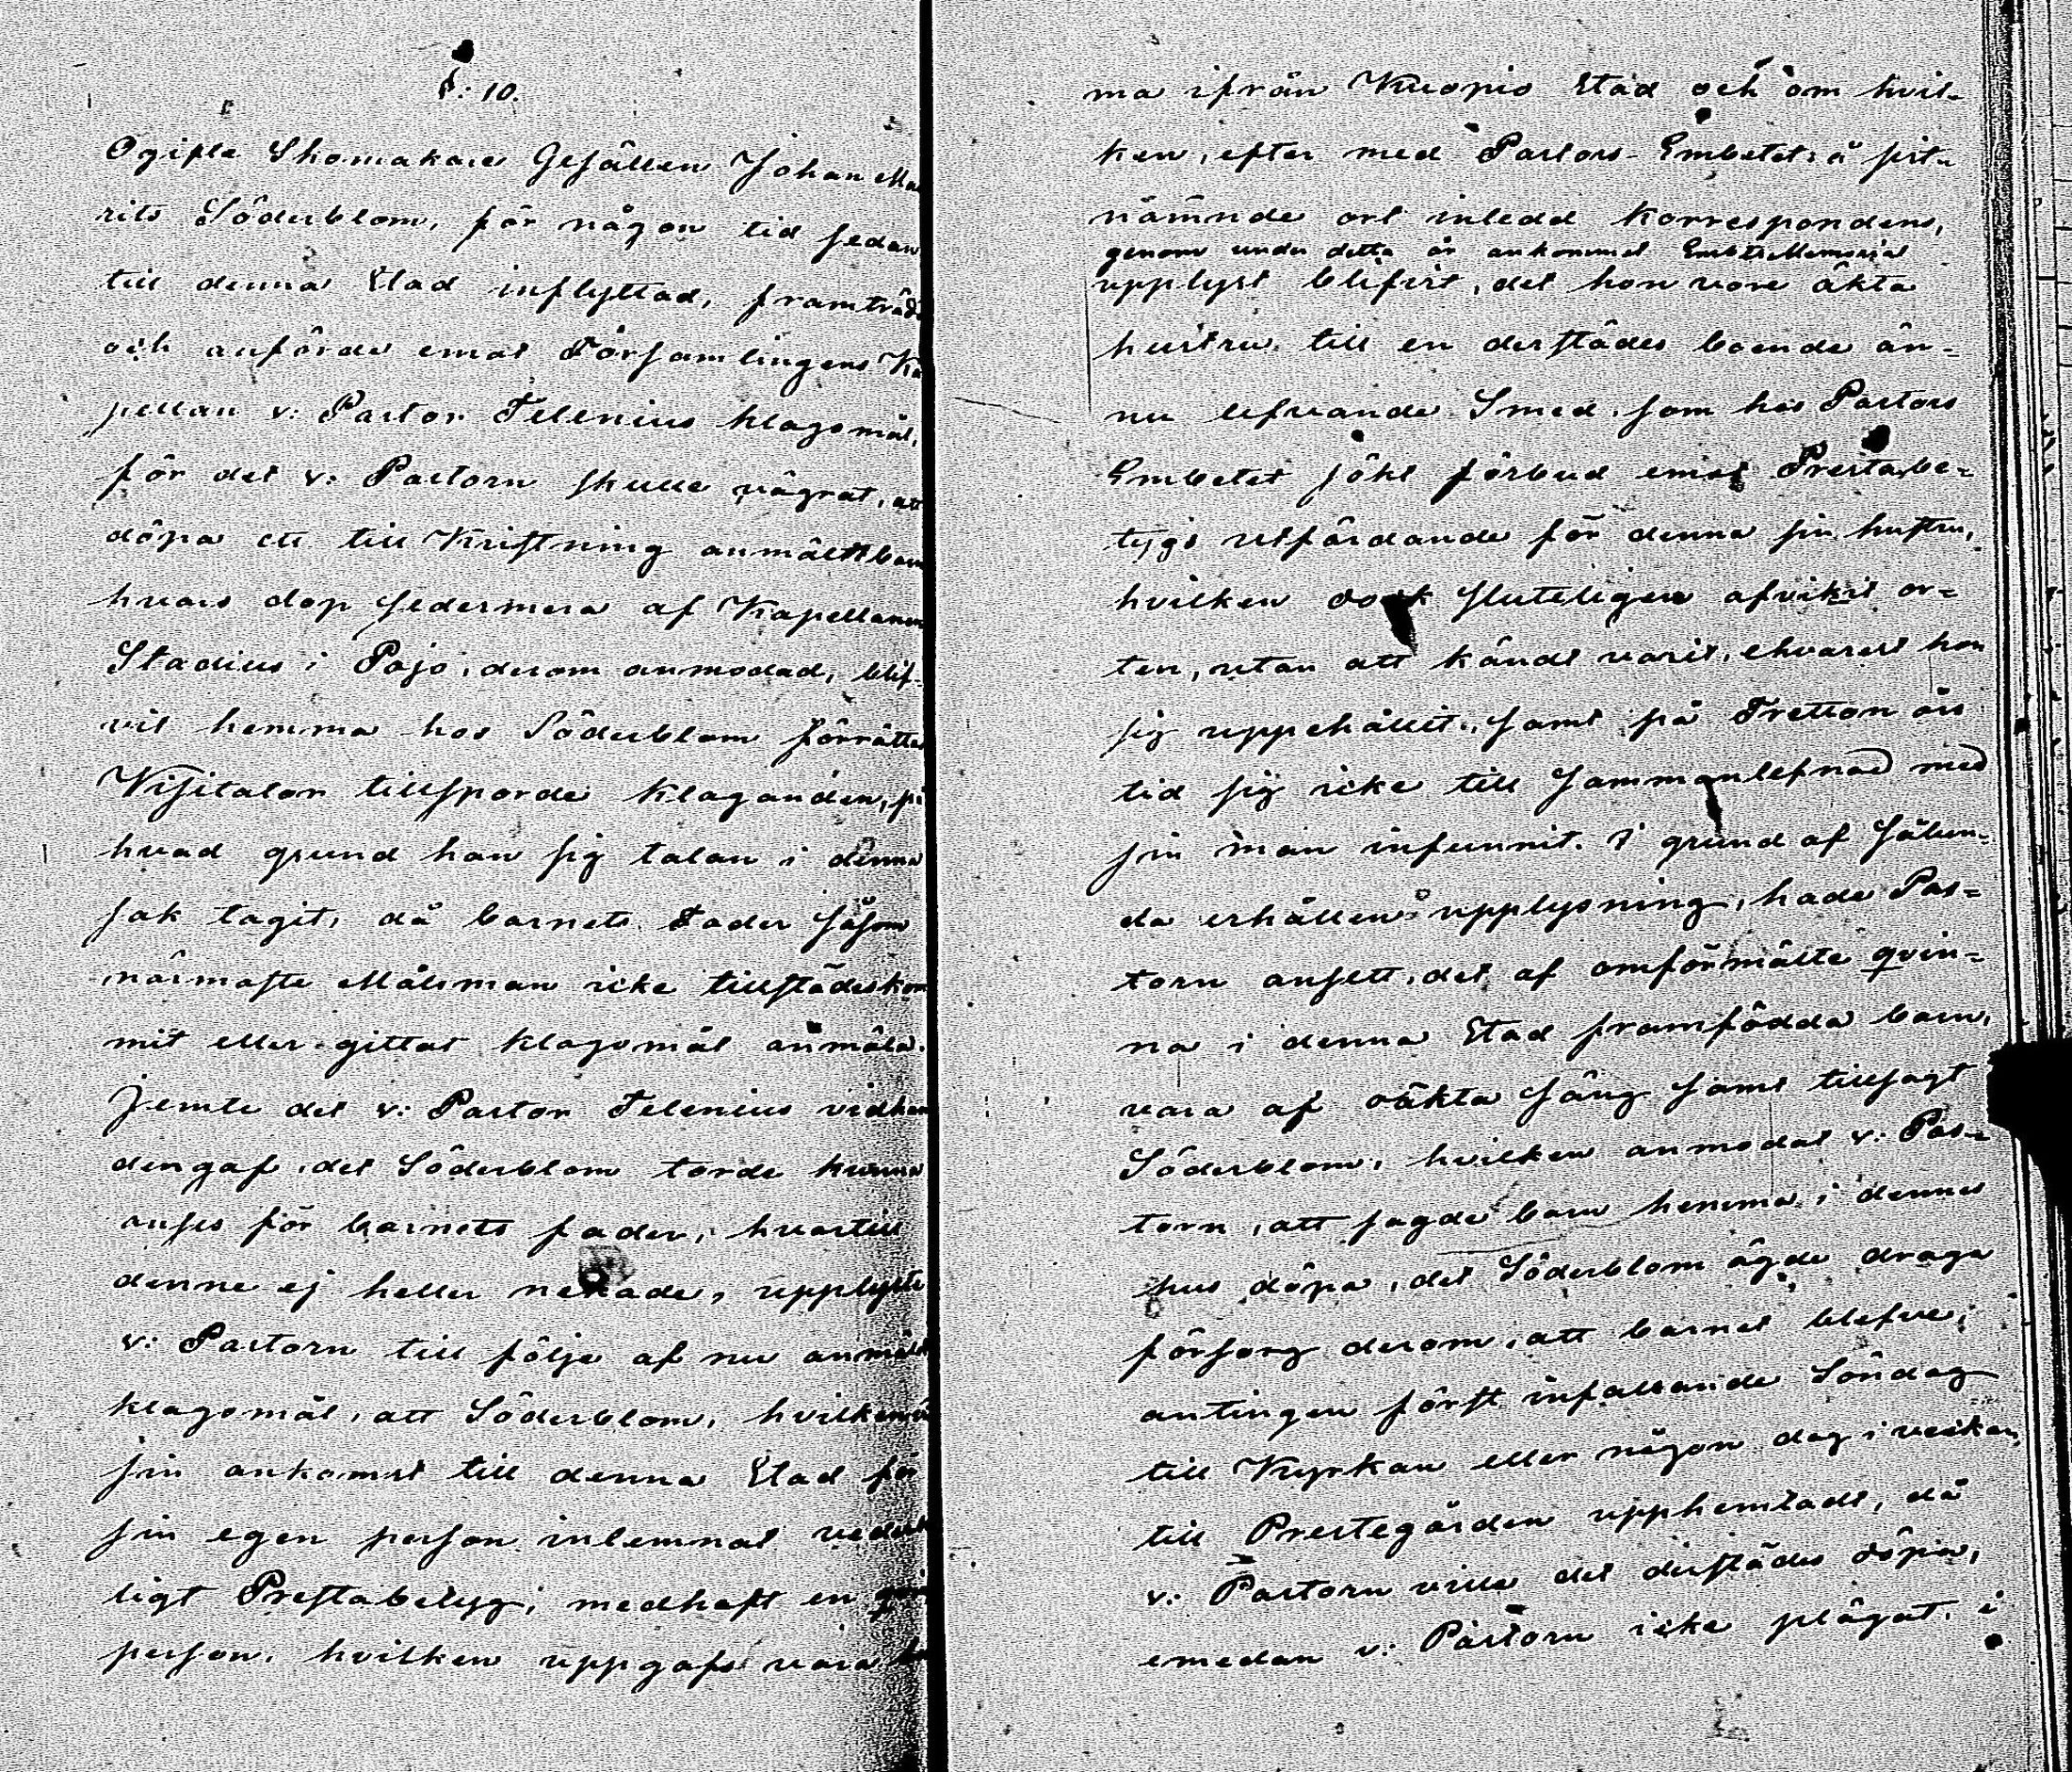 §: 10.
Ogifte Skomakare Gesällen Johan Mau
rits Söderblom, för någon tid sedan
till denna Stad inflyttad, framträdde
och anförde emot Församlingens Ka
pellan v: Pastor Telenius klagomål,
för det v: Pastorn skulle vägrat, att
döpa ett till Kristning anmäldt barn
hvars dop sedermera af Kapellanen
Stadius i Pojo, derom anmodad, blif-
vit hemma hos Söderblom förrättad
Visitator tillsporde klaganden, på
hvad grund han sig talan i denna
sak tagit, då barnets Fader såsom
närmaste Målsman icke tillstädeskom
mit eller gittat klagomål anmäla.
Jemte det v: Pastor Telenius vidhan
dengaf, det Söderblom torde kunna
anses för barnets fader, hvartill
denne ej heller nekade, upplyste
v: Pastorn till följe af nu anmäldt
klagomål, att Söderblom, hvilken vid
sin ankomst till denna Stad för
sin egen person inlemnat veder
ligt Prestabetyg, medhaft en
person, hvilken uppgafs vara
ma ifrån Kuopio Stad och om hvil-
ken, efter med Pastors-Embetet å sist-
nämnde ort inledd korrespondens,
genom under detta år ankommet Embets Memorial
upplyst blifvit, det hon vore äkta
hustru till en derstädes boende än-
nu lefvande Smed, som hos Pastors
Embetet sökt förbud emot Prestabe-
tygs utfärdande för denna sin hustru,
hvilken dock sluteligen afvikit or-
ten, utan att kändt varit, ehvarest hon
sig uppehållit, samt på Tretton års
tid sig icke till sammanlefnad med
sin man infunnit. I grund af sålun-
da erhållen upplysning, hade Pas-
torn ansett, det af omförmälte qvin-
na i denna Stad framfödda barn,
vara af oäkta säng samt tillsagt
Söderblom, hvilken anmodat v: Pas-
torn, att sagde barn hemma i dennes
hus döpa, det Söderblom ägde draga
försorg derom, att barnet blefve,
antingen först infallande Söndag
till Kyrkan eller någon dag i veckan,
till Prestegården upphemtadt, då
v: Pastorn ville det derstädes döpa,
emedan v: Pastorn icke plägat, i